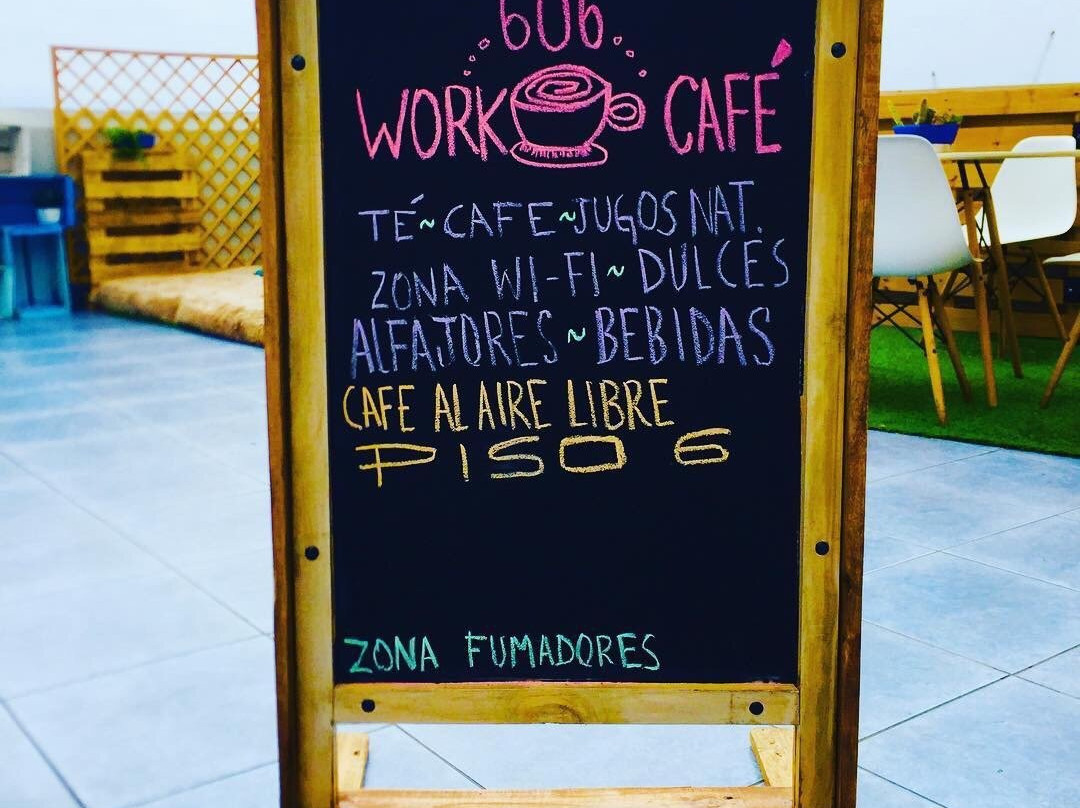 606
WORK CAFÉ
TÉ~CAFE~JUGOS NAT.
ZONA WI-FI~DULCES
ALFAJORES~BEBIDAS
CAFE AL AIRE LIBRE
PISO 6
ZONA FUMADORES